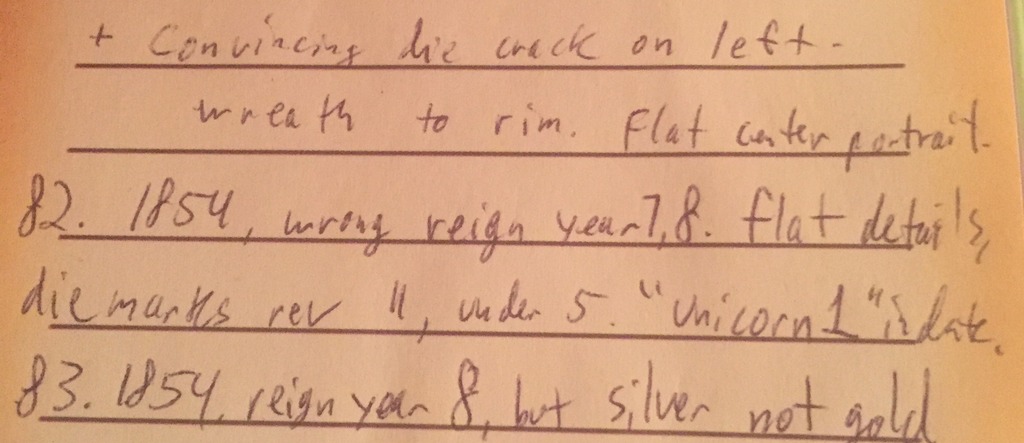 + Convincing die crack on left -
wreath to rim. Flat center portrait.
82. 1854, wrong reign year 7, 8. flat details,
die marks rev 11, under 5. "Unicorn 1" in date.
83. 1854, reign year 8, but silver not gold